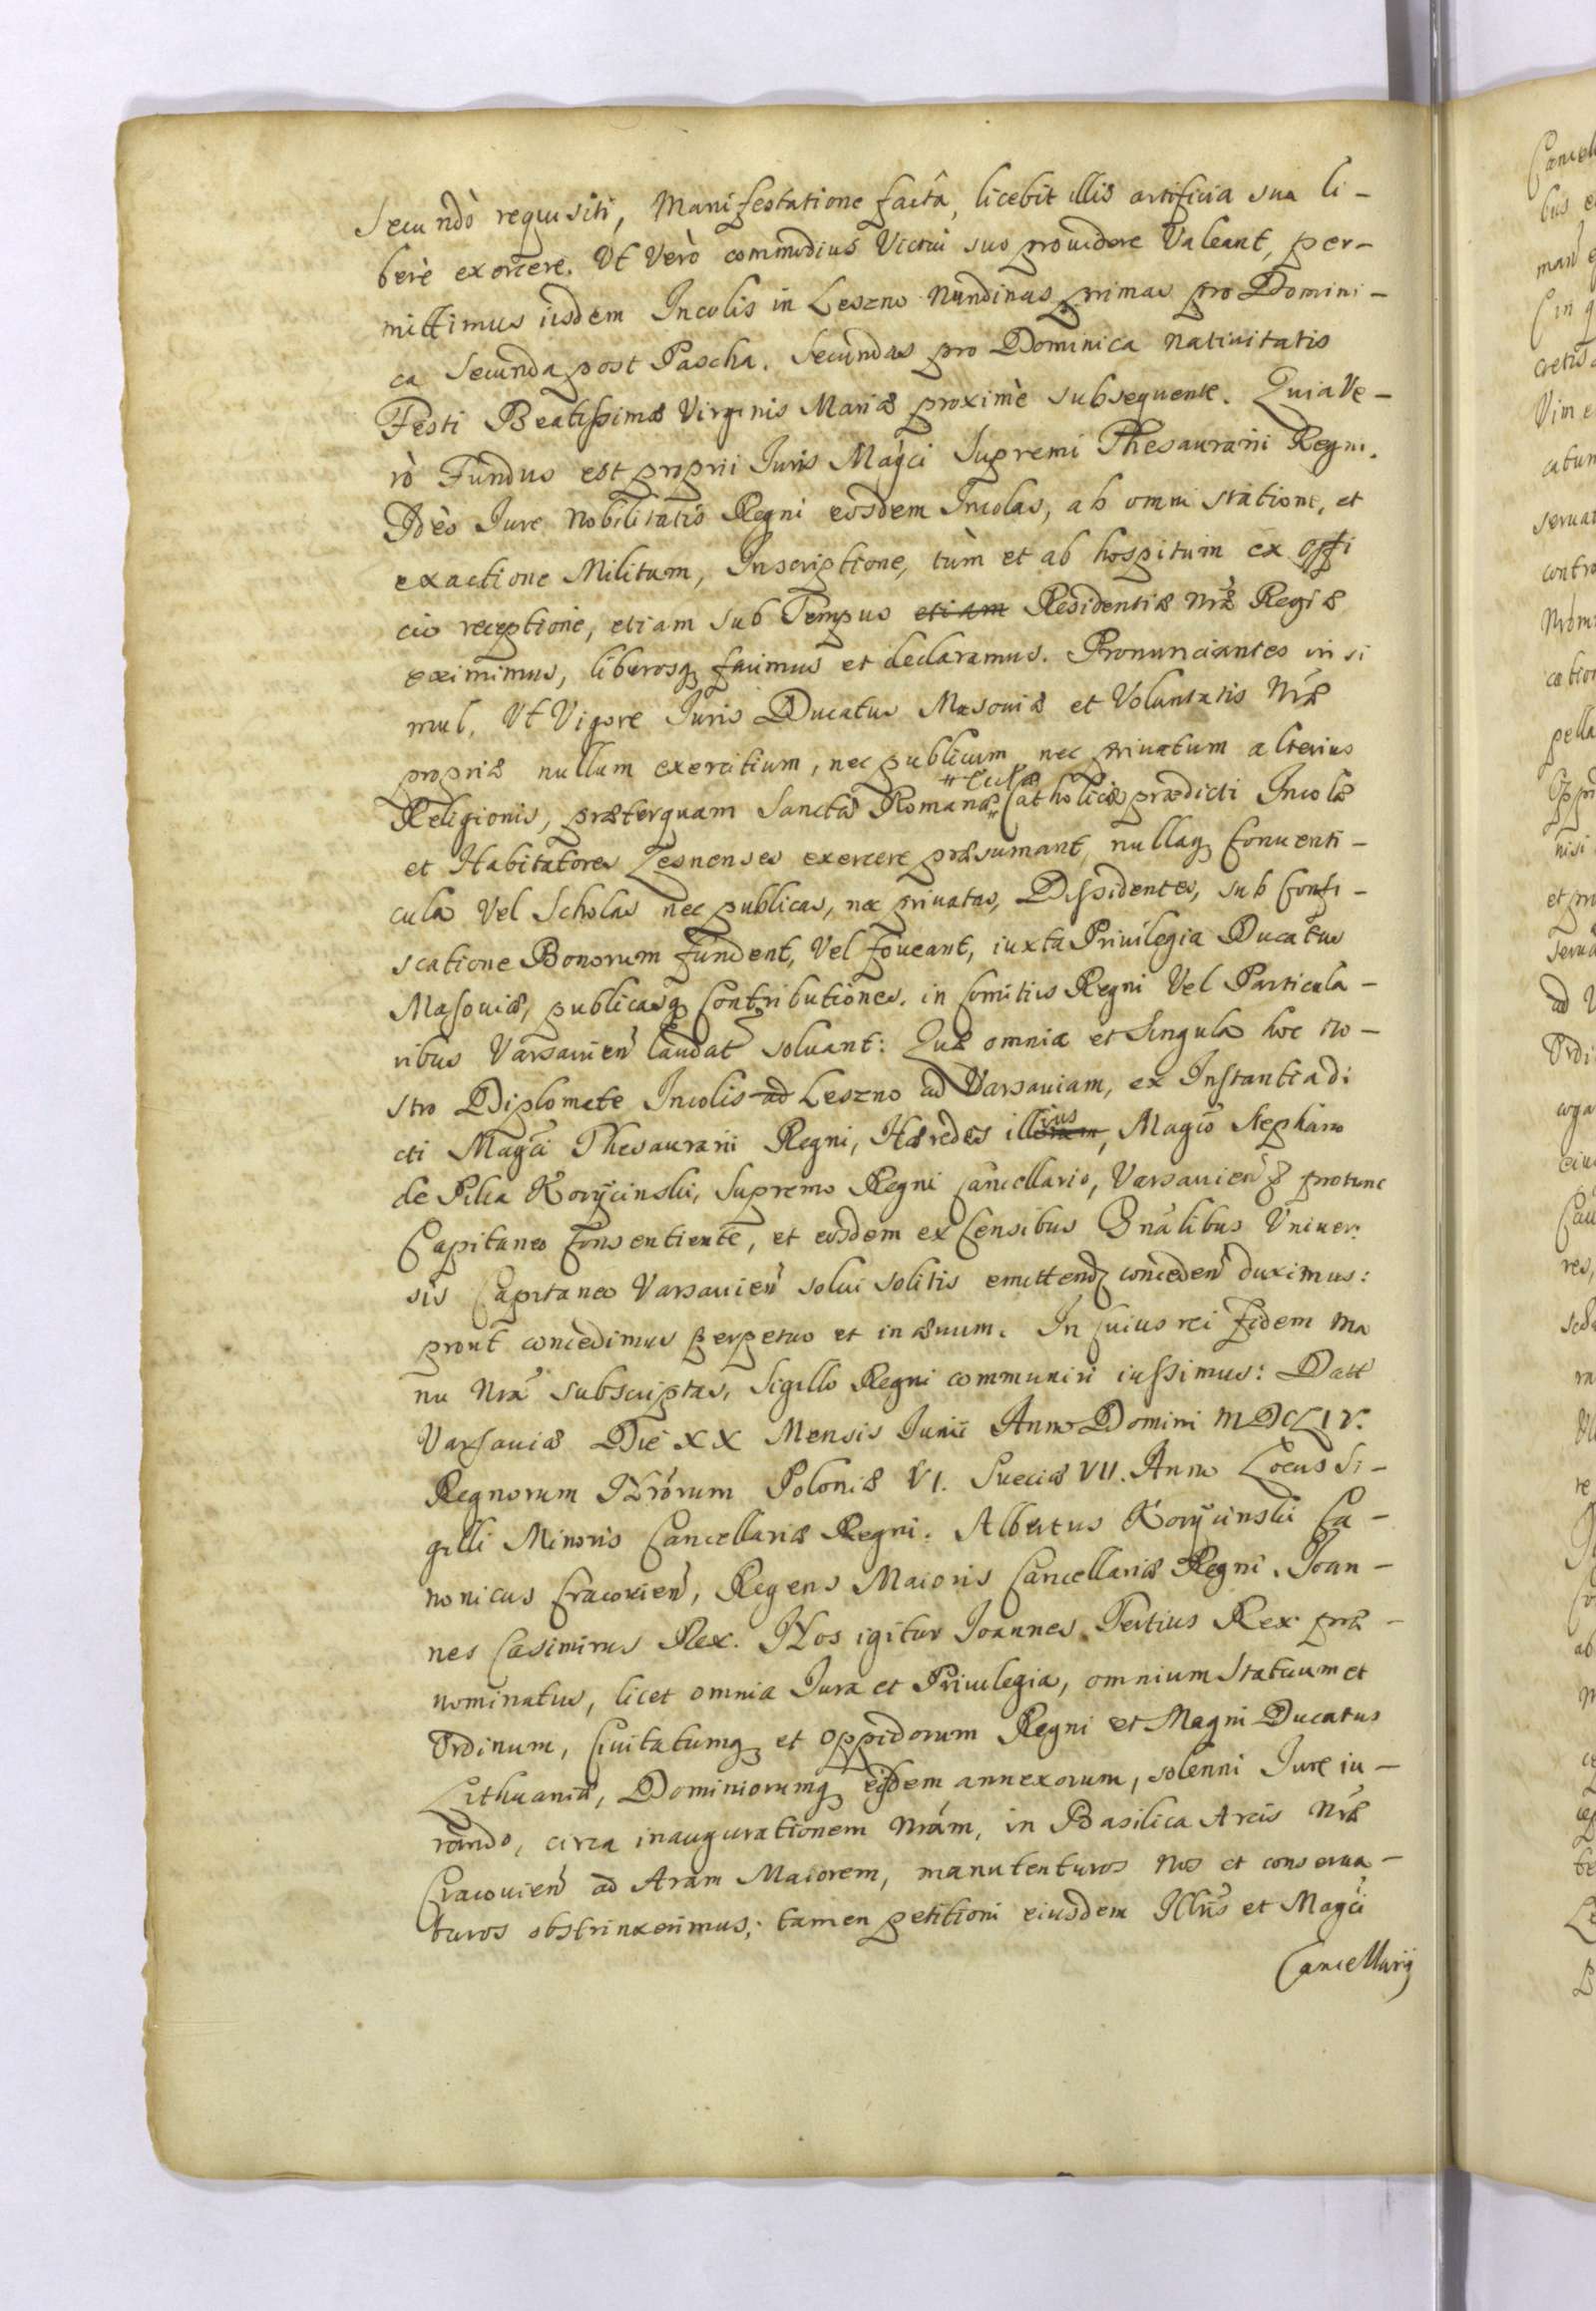 Secundò requisiti, Manifestatione factâ, licebit illis artificia sua li-
berè exercere. Ut Verò commodius Victui suo prouidere Valeant, per-
mittimus iisdem Incolis in Leszno Nundinas primas pro Domini-
ca Secunda post Pascha. Secundas pro Dominica Natiuitatis
Festi Beatissimæ Virginis Mariæ proximè subsequente. Quia Ve-
rò Fundus est proprii Iuris Magci Supremi Thesaurarii Regni.
Ideò Iure Nobilitatis Regni eosdem Incolas, ab omni statione, et
exactione Militum, Inscriptione, tùm et ab hospitum ex offi
cio receptione, etiam sub Tempus etiam Residentiæ Nræ Regiæ
eximimus, liberosq facimus et declaramus. Pronunciantes in si
mul, Ut Vigore Iuris Ducatus Masouiæ et Voluntatis Nræ
propriæ nullum exercitium, nec publicum nec priuatum alterius
Religionis, præterquam Sanctæ Romanæ Cathollicæ prædicti Incolæ
et Habitatores Lesnenses exercere præsumant, nullaq Conuenti-
cula Vel Scholas nec publicas, nec priuatas, Dissidentes, sub Confi-
scatione Bonorum fundent, Vel foueant, iuxta Priuilegia Ducatus
Masouiæ, publicasq Contributiones. in Comitiis Regni Vel Particula-
ribus Varsauien laudat soluant: Quæ omnia et Singula hoc no-
stro Diplomate Incolis ad Leszno ad Varsauiam, ex Instantia di
cti Magci Thesaurarii Regni, Hæredes illius, Magco Stephano
de Pilca Korÿcinski, Supremo Regni Cancellario, Varsauien protunc
Capitaneo Consentiente, et eosdem ex Censibus Gnalibus Uniuer
sis Capitaneo Varsauien solui solitis emittend conceden duximus:
prout concedimus perpetuo et in æuum. In Cuius rei fidem Ma
nu Nra subscriptas, Sigillo Regni communiri iussimus: Datt
Varsauiæ Die XX Mensis Iunii Anno Domini MDCLIV.
Regnorum Nrorum Poloniæ VI. Sueciæ VII. Anno Locus Si-
gilli Minoris Cancellariæ Regni. Albertus Korÿcinski Ca-
nonicus Cracouien, Regens Maioris Cancellariæ Regni. Ioan-
nes Casimirus Rex. Nos igitur Ioannes Tertius Rex præ-
nominatus, licet omnia Iura et Priuilegia, omnium Statuum et
Ordinum, Ciuitatumq et Oppidorum Regni et Magni Ducatus
Lithuaniæ, Dominiorumq eisdem annexorum, solenni Iure iu-
rando, circa inaugurationem Nram, in Basilica Arcis Nræ
Cracouien ad Aram Maiorem, manutenturos Nos et conserua-
turos obstrinxerimus; tamen petitioni eiusdem Illris et Magci
Cancellarij